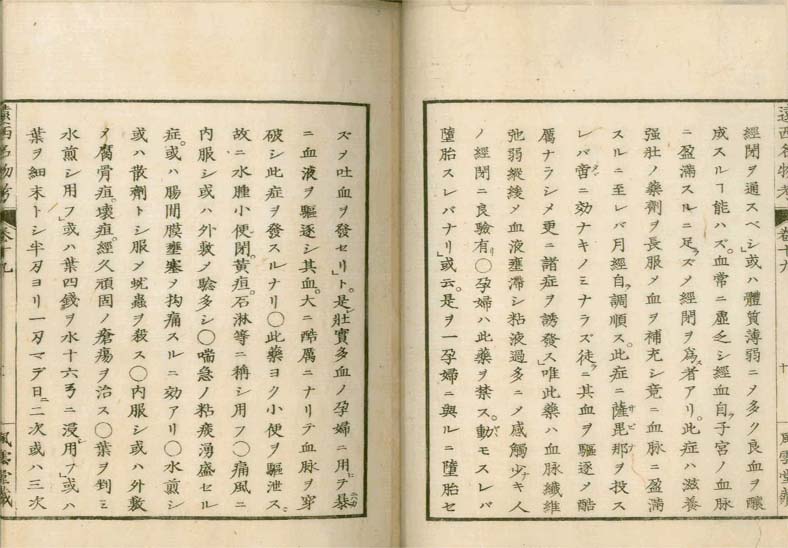 經閉ヲ通スベシ」或ハ體質薄弱ニメ多ク良血ヲ釀
成スルヿ能ハズ。血常ニ虛乏シ經血自ラ子宮ノ血脉
ニ盈滿スルニ足ラズメ經閉ヲ爲ス者アリ。此症ハ滋養
强壯ノ藥劑ヲ長服メ血ヲ補充シ竟ニ血脉ニ盈滿
スルニ至レバ月經自ラ調順ス。此症ニ薩毘那ヲ投ス
レバ啻ニ効ナキノミナラズ徒ニ其血ヲ驅逐メ酷
厲ナラシメ更ニ諸症ヲ誘發ス」唯此藥ハ血脉纎維
弛弱緩縵メ血液壅滯シ粘液過多ニメ感觸少キ人
ノ經閉ニ良驗有リ○孕婦ハ此藥ヲ禁ス。動モスレバ
墮胎スレバナリ」或云。是ヲ一孕婦ニ與ルニ墮胎セ
ズメ吐血ヲ發セリト。是レ壯實多血ノ孕婦ニ用テ暴
ニ血液ヲ驅逐シ其血。大ニ酷厲ニナリテ血脉ヲ穿
破シ此症ヲ發スルナリ○此藥ヨク小便ヲ驅泄ス。
故ニ水腫小便閉。黃疸。石淋等ニ稱シ用フ○痛風ニ
內服シ或ハ外敷メ驗多シ○喘急ノ粘痰湧盛セル
症。或ハ腸間膜壅塞ヲ拘痛スルニ効アリ○水煎シ
或ハ散劑トシ服メ蚘蟲ヲ殺ス○內服シ或ハ外敷
メ腐骨疽。壞疽。經久頑固ノ瘡瘍ヲ治ス○葉ヲ剉ミ
水煎シ用フ」或ハ葉四錢ヲ水十六ヲニ浸用フ」或ハ
葉ヲ細末トシ半刄ヨリ一刄マデ日ニ二次或ハ三次
遠西名物考
卷十九
風雲堂藏